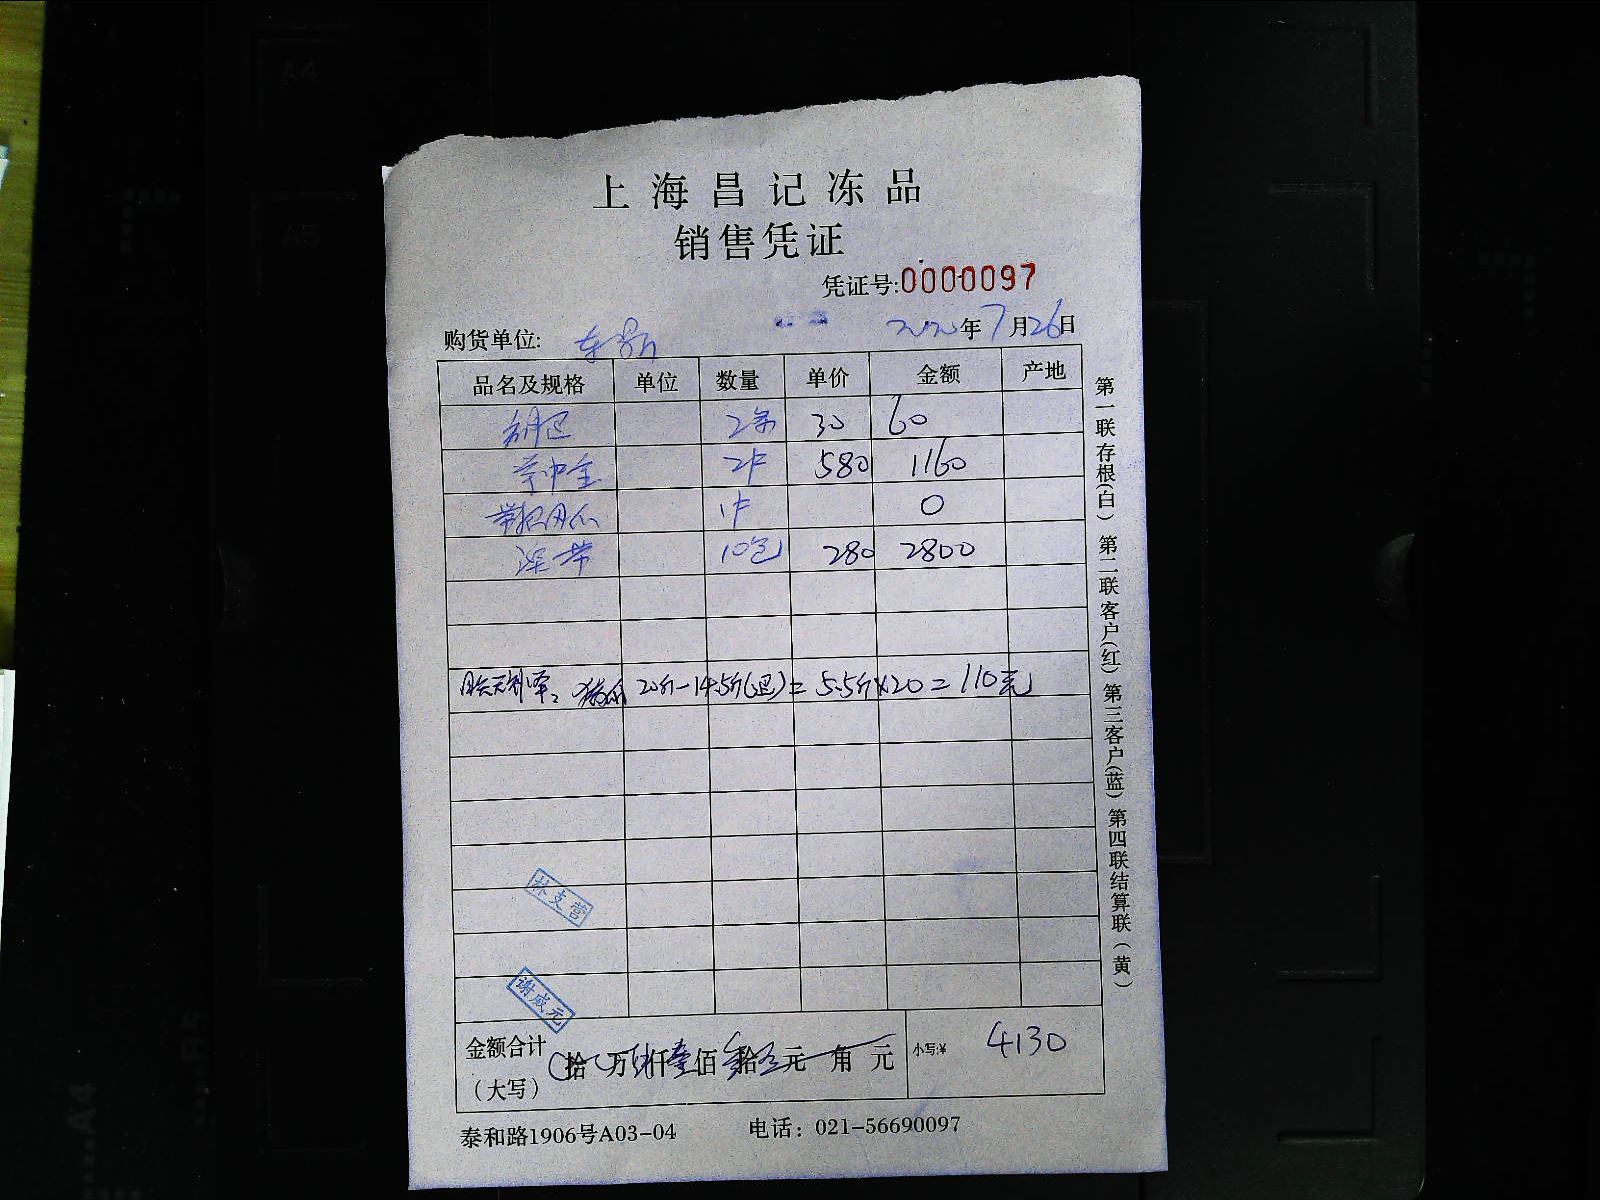 上海昌记冻品
销售凭证
凭证号:0000097
购货单位: 2020年7月26日
品名及规格 单位 数量 单价 金额 产地
2条 30 60
2件 580 1160
1件 0
10包 280 2800
20斤-14.5斤(退)=5.5斤×20=110元
林支营
谢成元
金额合计
(大写)
拾万肆仟壹佰叁拾元角元
小写:¥ 4130
泰和路1906号A03-04 电话：021-56690097
第一联存根(白) 第二联客户(红) 第三客户(蓝) 第四联结算联(黄)
A4
A5
B5
A4